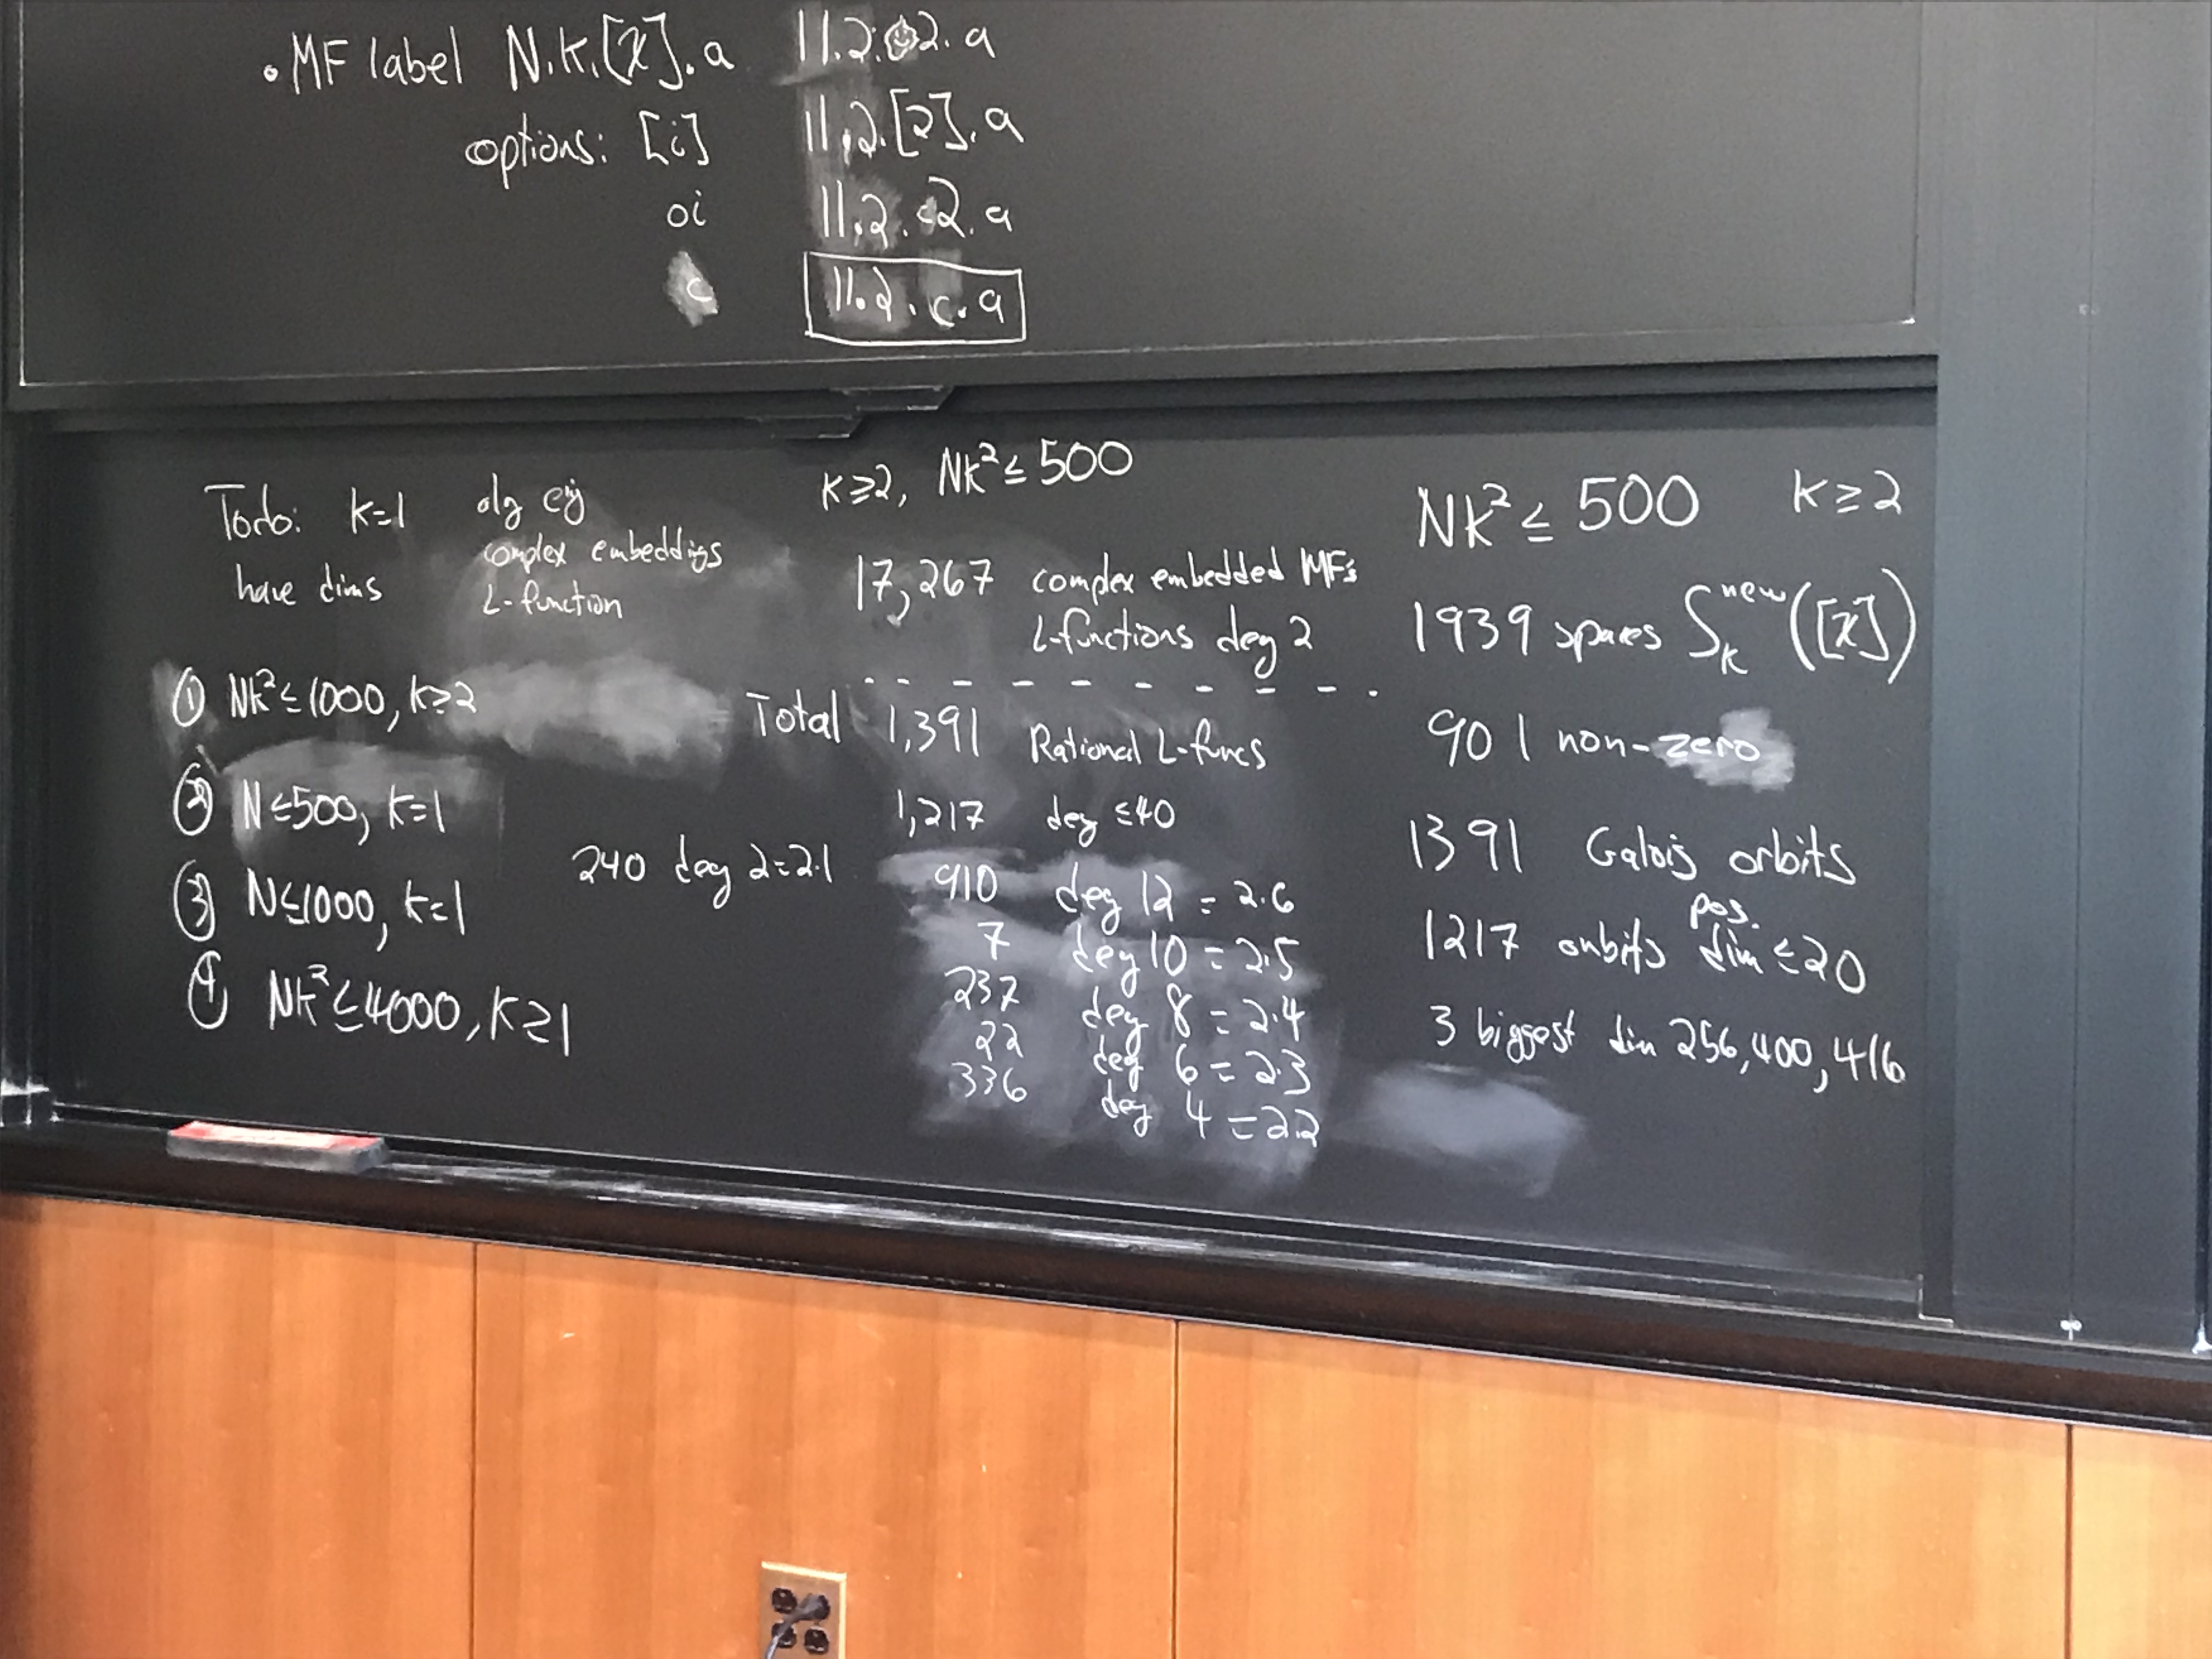 • MF label N.k.[χ].a 11.2.o2.a
options: [i] 11.2.[2].a
oi 11.2.c2.a
c 11.2.c.a
Todo: k=1 alg eig
complex embeddings
have dims L-function
① Nk²≤1000, k≥2
② N≤500, k=1
③ N≤1000, k=1
④ Nk²≤4000, k≥1
k≥2, Nk²≤500
17,267 complex embedded MFs
L-functions deg 2
Total 1,391 Rational L-funcs
1,217 deg ≤40
240 deg 2=2·1
910 deg 12 = 2·6
7 deg 10 = 2·5
237 deg 8 = 2·4
22 deg 6 = 2·3
336 deg 4 = 2·2
Nk² ≤ 500 k≥2
1939 spaces S_k^new([χ])
901 non-zero
1391 Galois orbits
pos.
1217 orbits dim ≤20
3 biggest dim 256,400,416